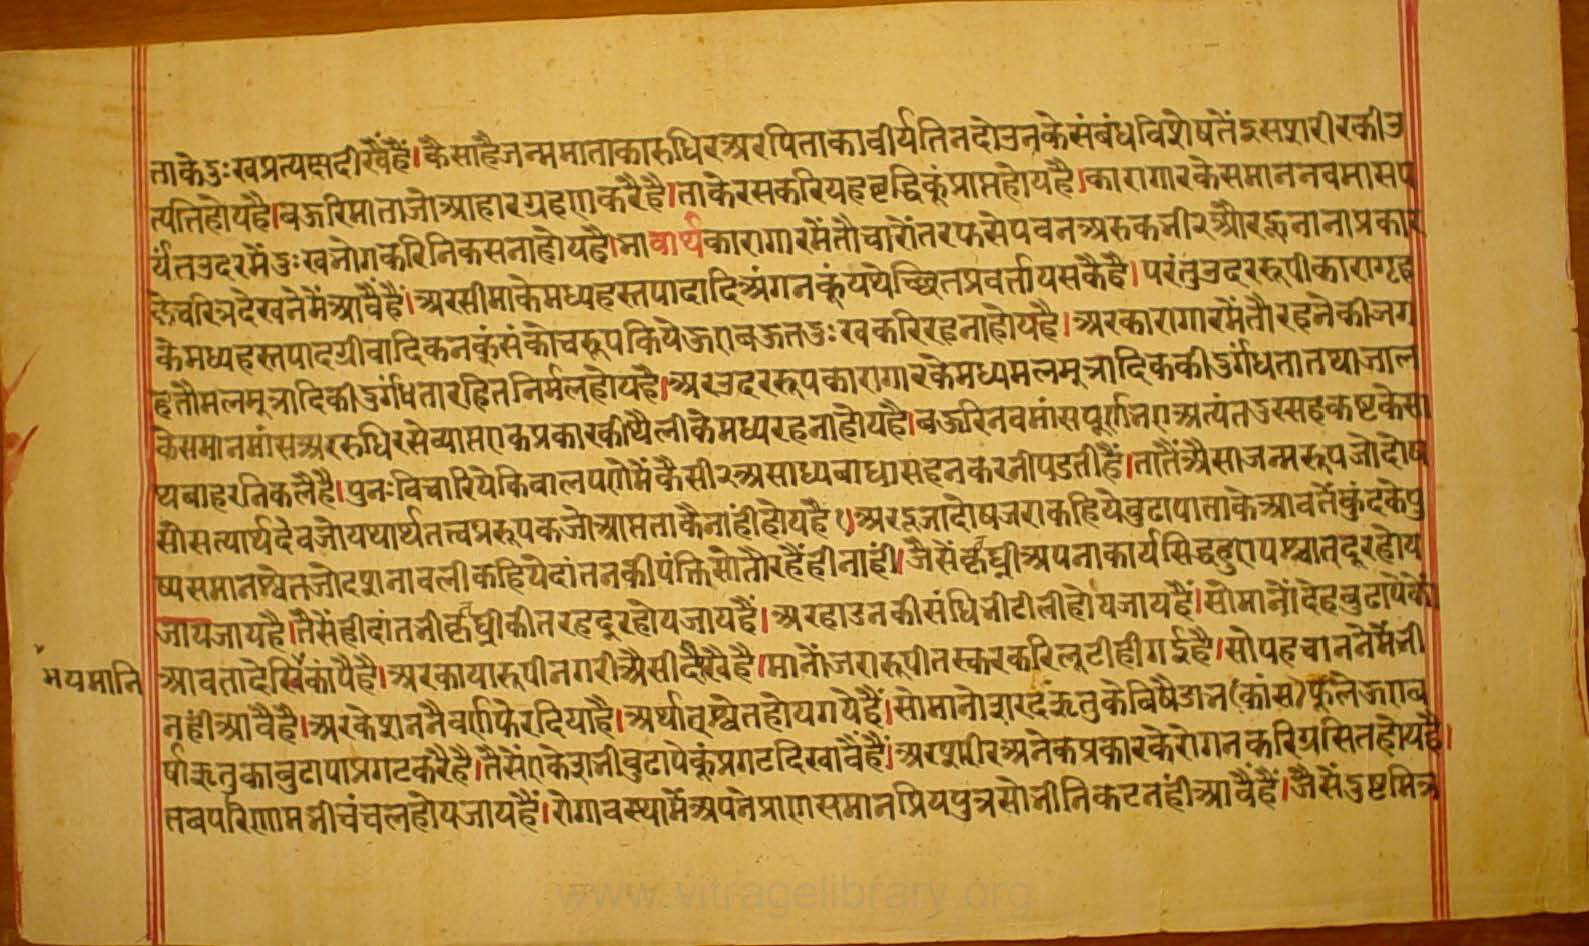 ताकेदुःखप्रत्यक्षदीखैंहैं।कैसाहैजन्ममाताकारुधिरअरपिताकावीर्यतिनदोउनकेसंबंधविशेषतेंइसशरीरकीउ
त्पत्तिहोयहै।बऊरिमाताजोआहारग्रहणकरैहै।ताकेरसकरियहवृद्धिकूंप्राप्तहोयहै।कारागारकेसमाननवमासप
र्यंतउदरमेंदुःखभोगकरिनिकसनाहोयहै।भावार्थकारागारमेंतौचारोंतरफसेपवनअरुकभी२औरऊनानाप्रकार
केचरित्रदेखनेमेंआवैंहैं।अरसीमाकेमध्यहस्तपादादिअंगनकूंयथेच्छितप्रवर्त्तायसकैहै।परंतुउदररूपीकारागृह
केमध्यहस्तपादग्रीवादिकनकुंसंकोचरूपकियेऊएबऊतदुःखकरिरहनाहोयहै।अरकारागारमेंतौरहनेकीजग
हतौमलमूत्रादिकीदुर्गंधतारहितनिर्मलहोयहै।अरउदररूपकारागारकेमध्यमलमूत्रादिककीदुर्गंधतातथाजाल
केसमानमांसअररुधिरसेव्याप्तएकप्रकारकीथैलीकेमध्यरहनाहोयहै।बऊरिनवमांसपूर्णभएअत्यंतदुस्सहकष्टकेसा
थबाहरनिकलैहै।पुनःविचारियेकिबालपणेमेंकैसी२असाध्यबाधासहनकरनीपडतीहैं।तातैंऐसाजन्मरूपजोदोष
सोसत्यार्थदेवजोयथार्थतत्वप्ररूपकजोआप्तताकैनांहीहोयहै।अरदूजादोषजराकहियेबुढापाताकेआवतेंकुंदकेपु
ष्पसमानश्वेतजोदशनावलीकहियेदांतनकीपंक्तिसोतौरहैंहीनाहीं।जैसेंकृतघ्नीअपनाकार्यसिद्धहुएपश्चात्दूरहोय
जायजायहै।तैसेंहीदांतभीकृतघ्नीकीतरहदूरहोयजायहैं।अरहाडनकीसंधिभीढीलीहोयजायहैं।सोमानोंदेहबुढापेकों
आवतादेखिकांपैहै।अरकायारूपीनगरीऐसीदीखैहै।मानोंजरारूपीतस्करकरिलूटीहीगईहै।सोपहचाननेमेंभी
भयमानि
नहींआवैहै।अरकेशननैवर्णफेरदियाहै।अर्थात्श्वेतहोयगयेहैं।सोमानोशरदऋतुकेविषैडाभ(कांस)फूलेऊएव
र्षाऋतुकाबुढापाप्रगटकरैहै।तैसेंएकेशभीबुढापेकूंप्रगटदिखावैंहैं।अरशरीरअनेकप्रकारकेरोगनकरिग्रसितहोयहै।
तबपरिणामभीचंचलहोयजायहैं।रोगावस्थामेंअपनेप्राणसमानप्रियपुत्रसोभीनिकटनहींआवैंहैं।जैसेंदुष्टमित्र